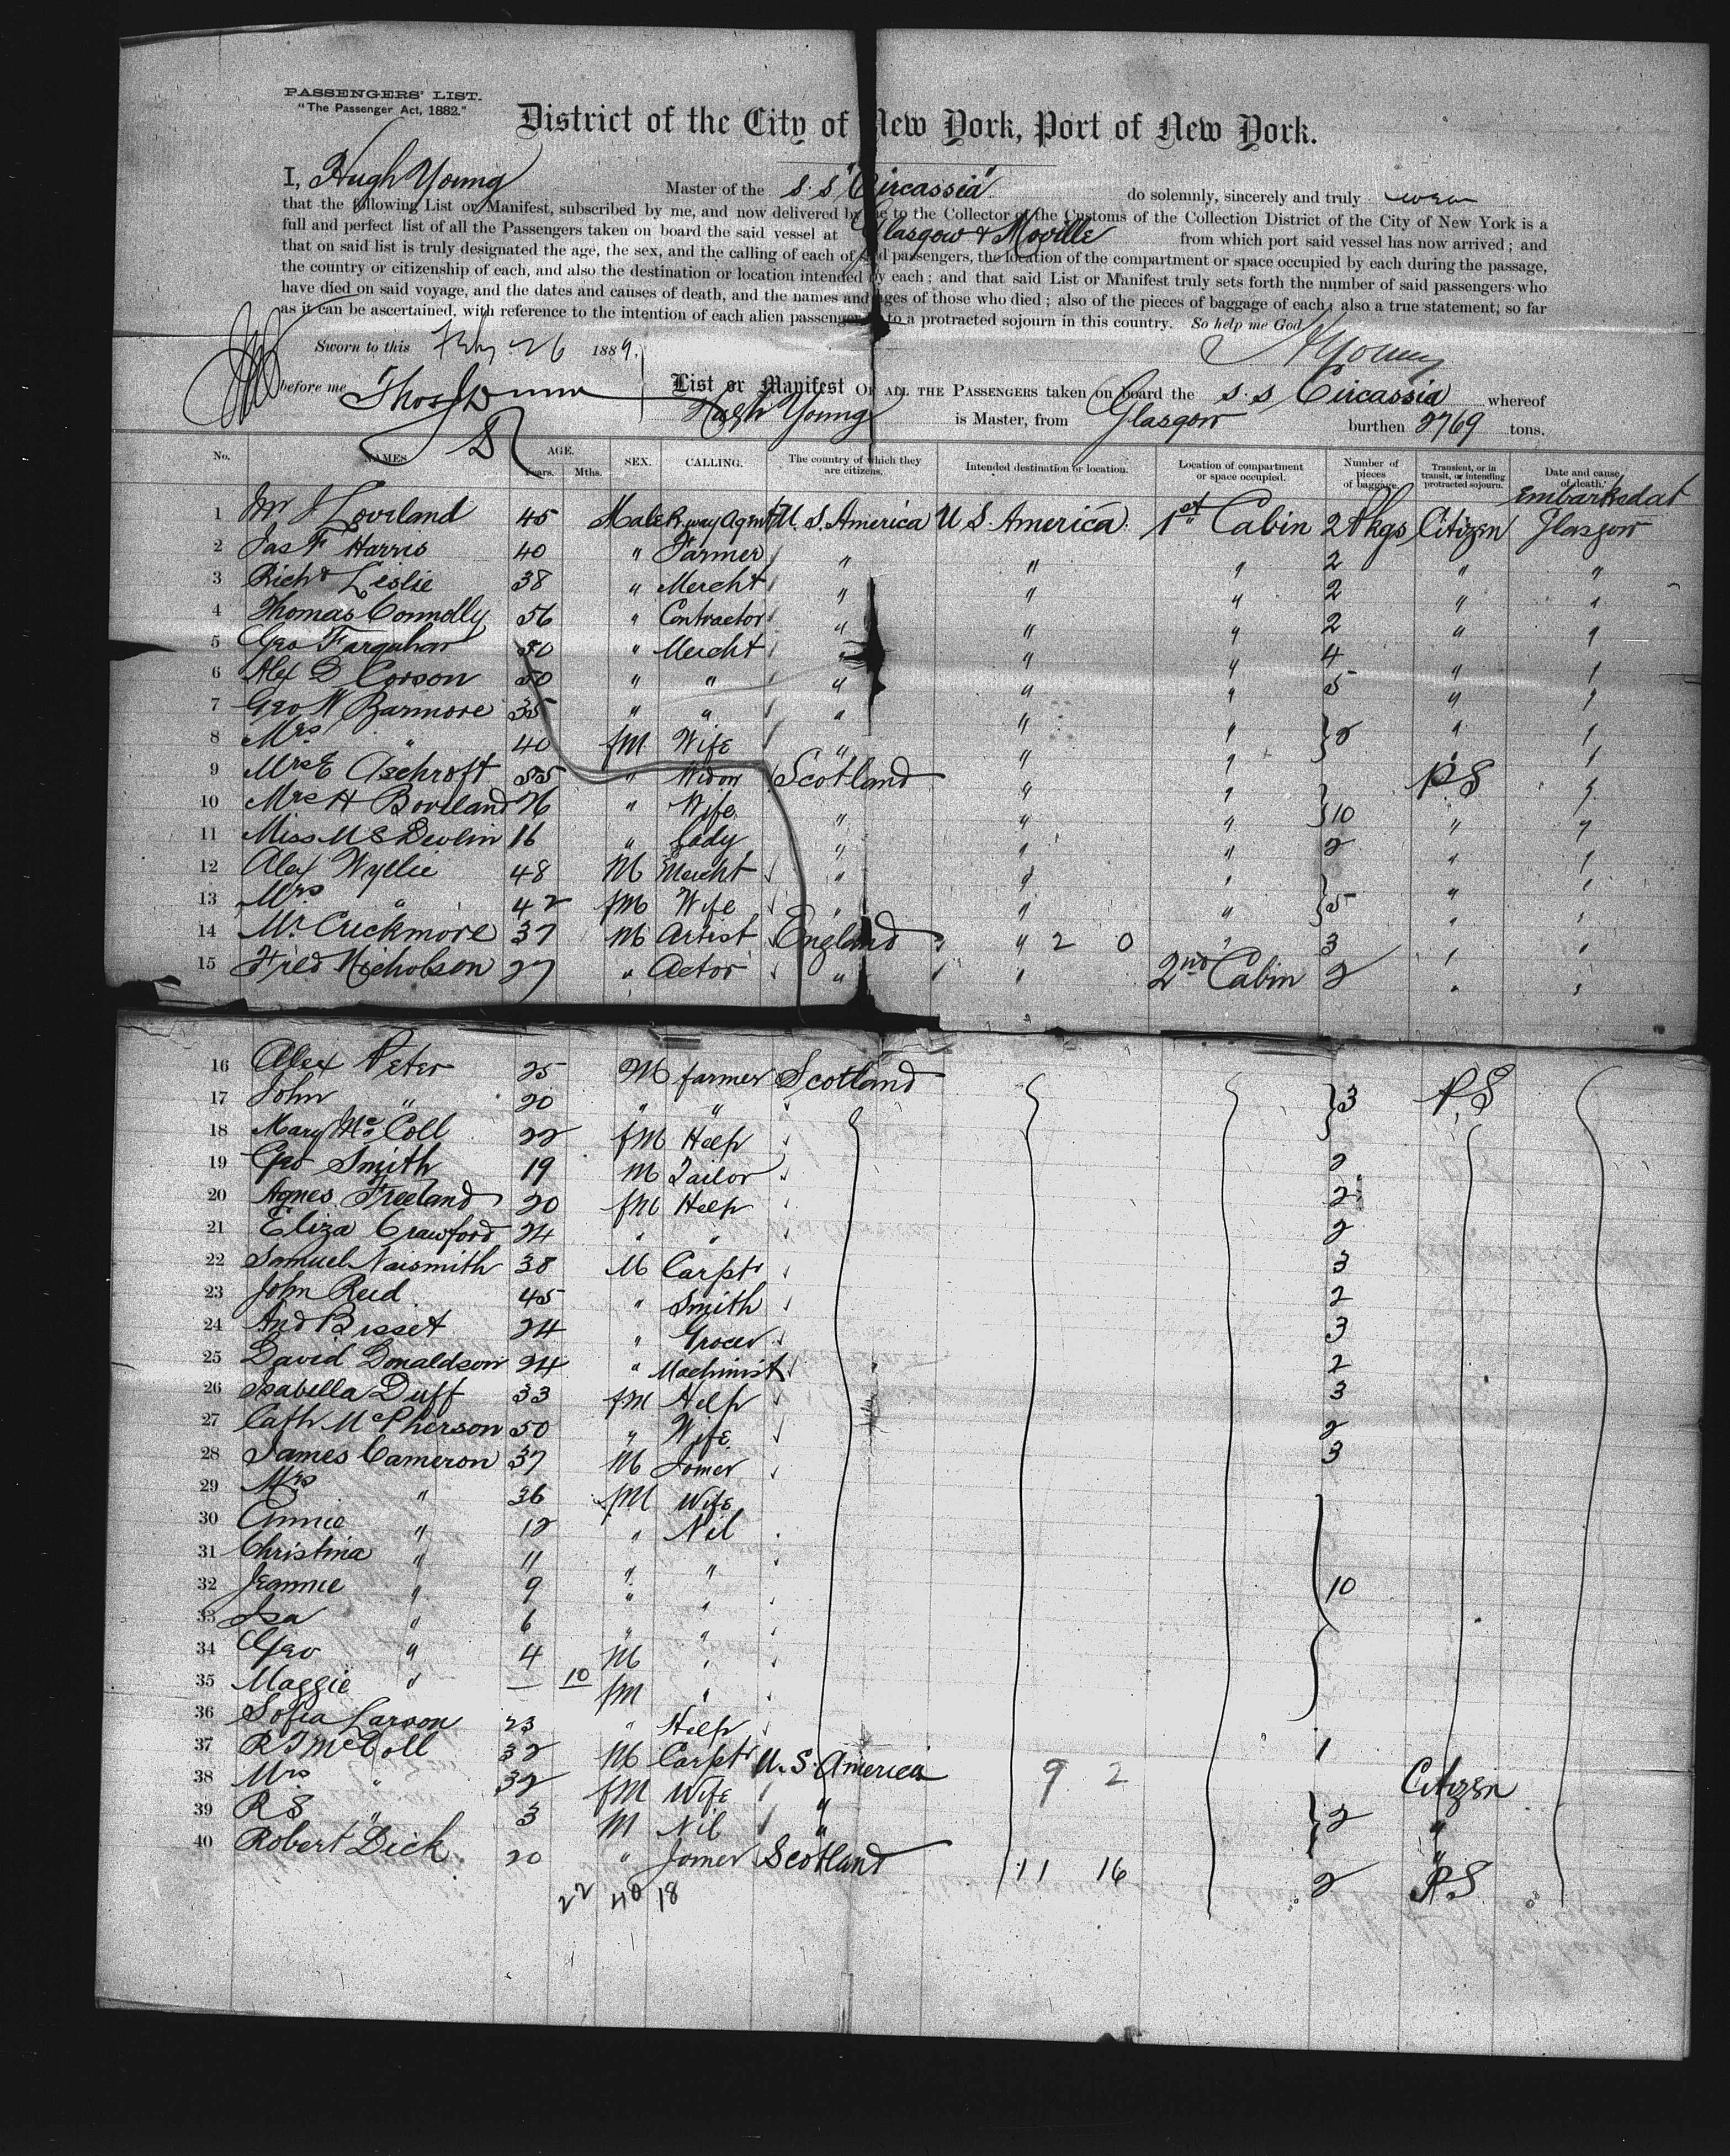 PASSENGERS' LIST.
"The Passenger Act, 1882."
District of the City of New York, Port of New York.
I, Hugh Young Master of the S.S "Circassia" do solemnly, sincerely and truly swear
that the following List or Manifest, subscribed by me, and now delivered by me to the Collector of the Customs of the Collection District of the City of New York is a
full and perfect list of all the Passengers taken on board the said vessel at Glasgow & Moville from which port said vessel has now arrived; and
that on said list is truly designated the age, the sex, and the calling of each of said passengers, the location of the compartment or space occupied by each during the passage,
the country or citizenship of each, and also the destination or location intended by each; and that said List or Manifest truly sets forth the number of said passengers who
have died on said voyage, and the dates and causes of death, and the names and ages of those who died; also of the pieces of baggage of each; also a true statement, so far
as it can be ascertained, with reference to the intention of each alien passenger as to a protracted sojourn in this country. So help me God.
Sworn to this Feby 26 1889. H Young
before me Thos Dunn
List or Manifest OF ALL THE PASSENGERS taken on board the S.S Circassia whereof
Hugh Young is Master, from Glasgow burthen 2769 tons.
No. NAMES AGE. Years. Mths. SEX. CALLING. The country of which they are citizens. Intended destination or location. Location of compartment or space occupied. Number of pieces of baggage. Transient, or in transit, or intending protracted sojourn. Date and cause of death.
Embarked at
1 Mr J Loveland 45 Male R.way Agent U.S. America U S. America 1st Cabin 2 Pkgs Citizen Glasgow
2 Jas F Harris 40 " Farmer " " " 2 " "
3 Richd Leslie 38 " Mercht " " " 2 " "
4 Thomas Connolly 56 " Contractor " " " 2 " "
5 Geo Farquhar 50 " Mercht " " " 4 " "
6 Alex D Corson 50 " " " " " 5 " "
7 Geo W Barmore 35 " " " " " " "
8 Mrs " 40 fM Wife " " " } 2 " "
9 Mrs E Aschroft 55 " Widow Scotland " " P.S "
10 Mrs H Boreland 26 " Wife " " " } 10 " "
11 Miss M E Devlin 16 " Lady " " " 2 " "
12 Alex Wyllie 48 M Mercht " " " " "
13 Mrs " 42 fM Wife " " " } 5 " "
14 Mr Cuckmore 37 M Artist England " 2 0 " 3 " "
15 Fred Nicholson 27 " Actor " " 2nd Cabin 2 " "
16 Alex Peter 25 M farmer Scotland P.S
17 John " 20 " " } 3
18 Mary McColl 22 fM Help
19 Geo Smith 19 M Tailor 2
20 Agnes Freeland 20 fM Help 2
21 Eliza Crawford 24 " " 2
22 Samuel Naismith 38 M Carptr 3
23 John Reid 45 " Smith 2
24 And Bisset 24 " Grocer 3
25 David Donaldson 24 " Machinist 2
26 Isabella Duff 33 fM Help 3
27 Cath McPherson 50 " Wife 2
28 James Cameron 37 M Joiner 3
29 Mrs " 36 fM Wife
30 Annie " 12 " Nil
31 Christina " 11 " "
32 Jeannie " 9 " " } 10
33 Isa " 6 " "
34 Geo " 4 M "
35 Maggie " — 10 fM "
36 Sofia Larson 23 " Help
37 R J McColl 32 M Carptr U.S. America 9 2 1 Citizen
38 Mrs " 32 fM Wife " "
39 R S " 3 M Nil " } 2 "
40 Robert Dick 20 " Joiner Scotland 11 16 2 P.S
22 40 18